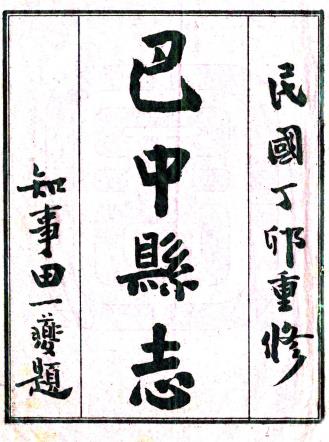 民國丁卯重修
巴中縣志
知事田一夔題